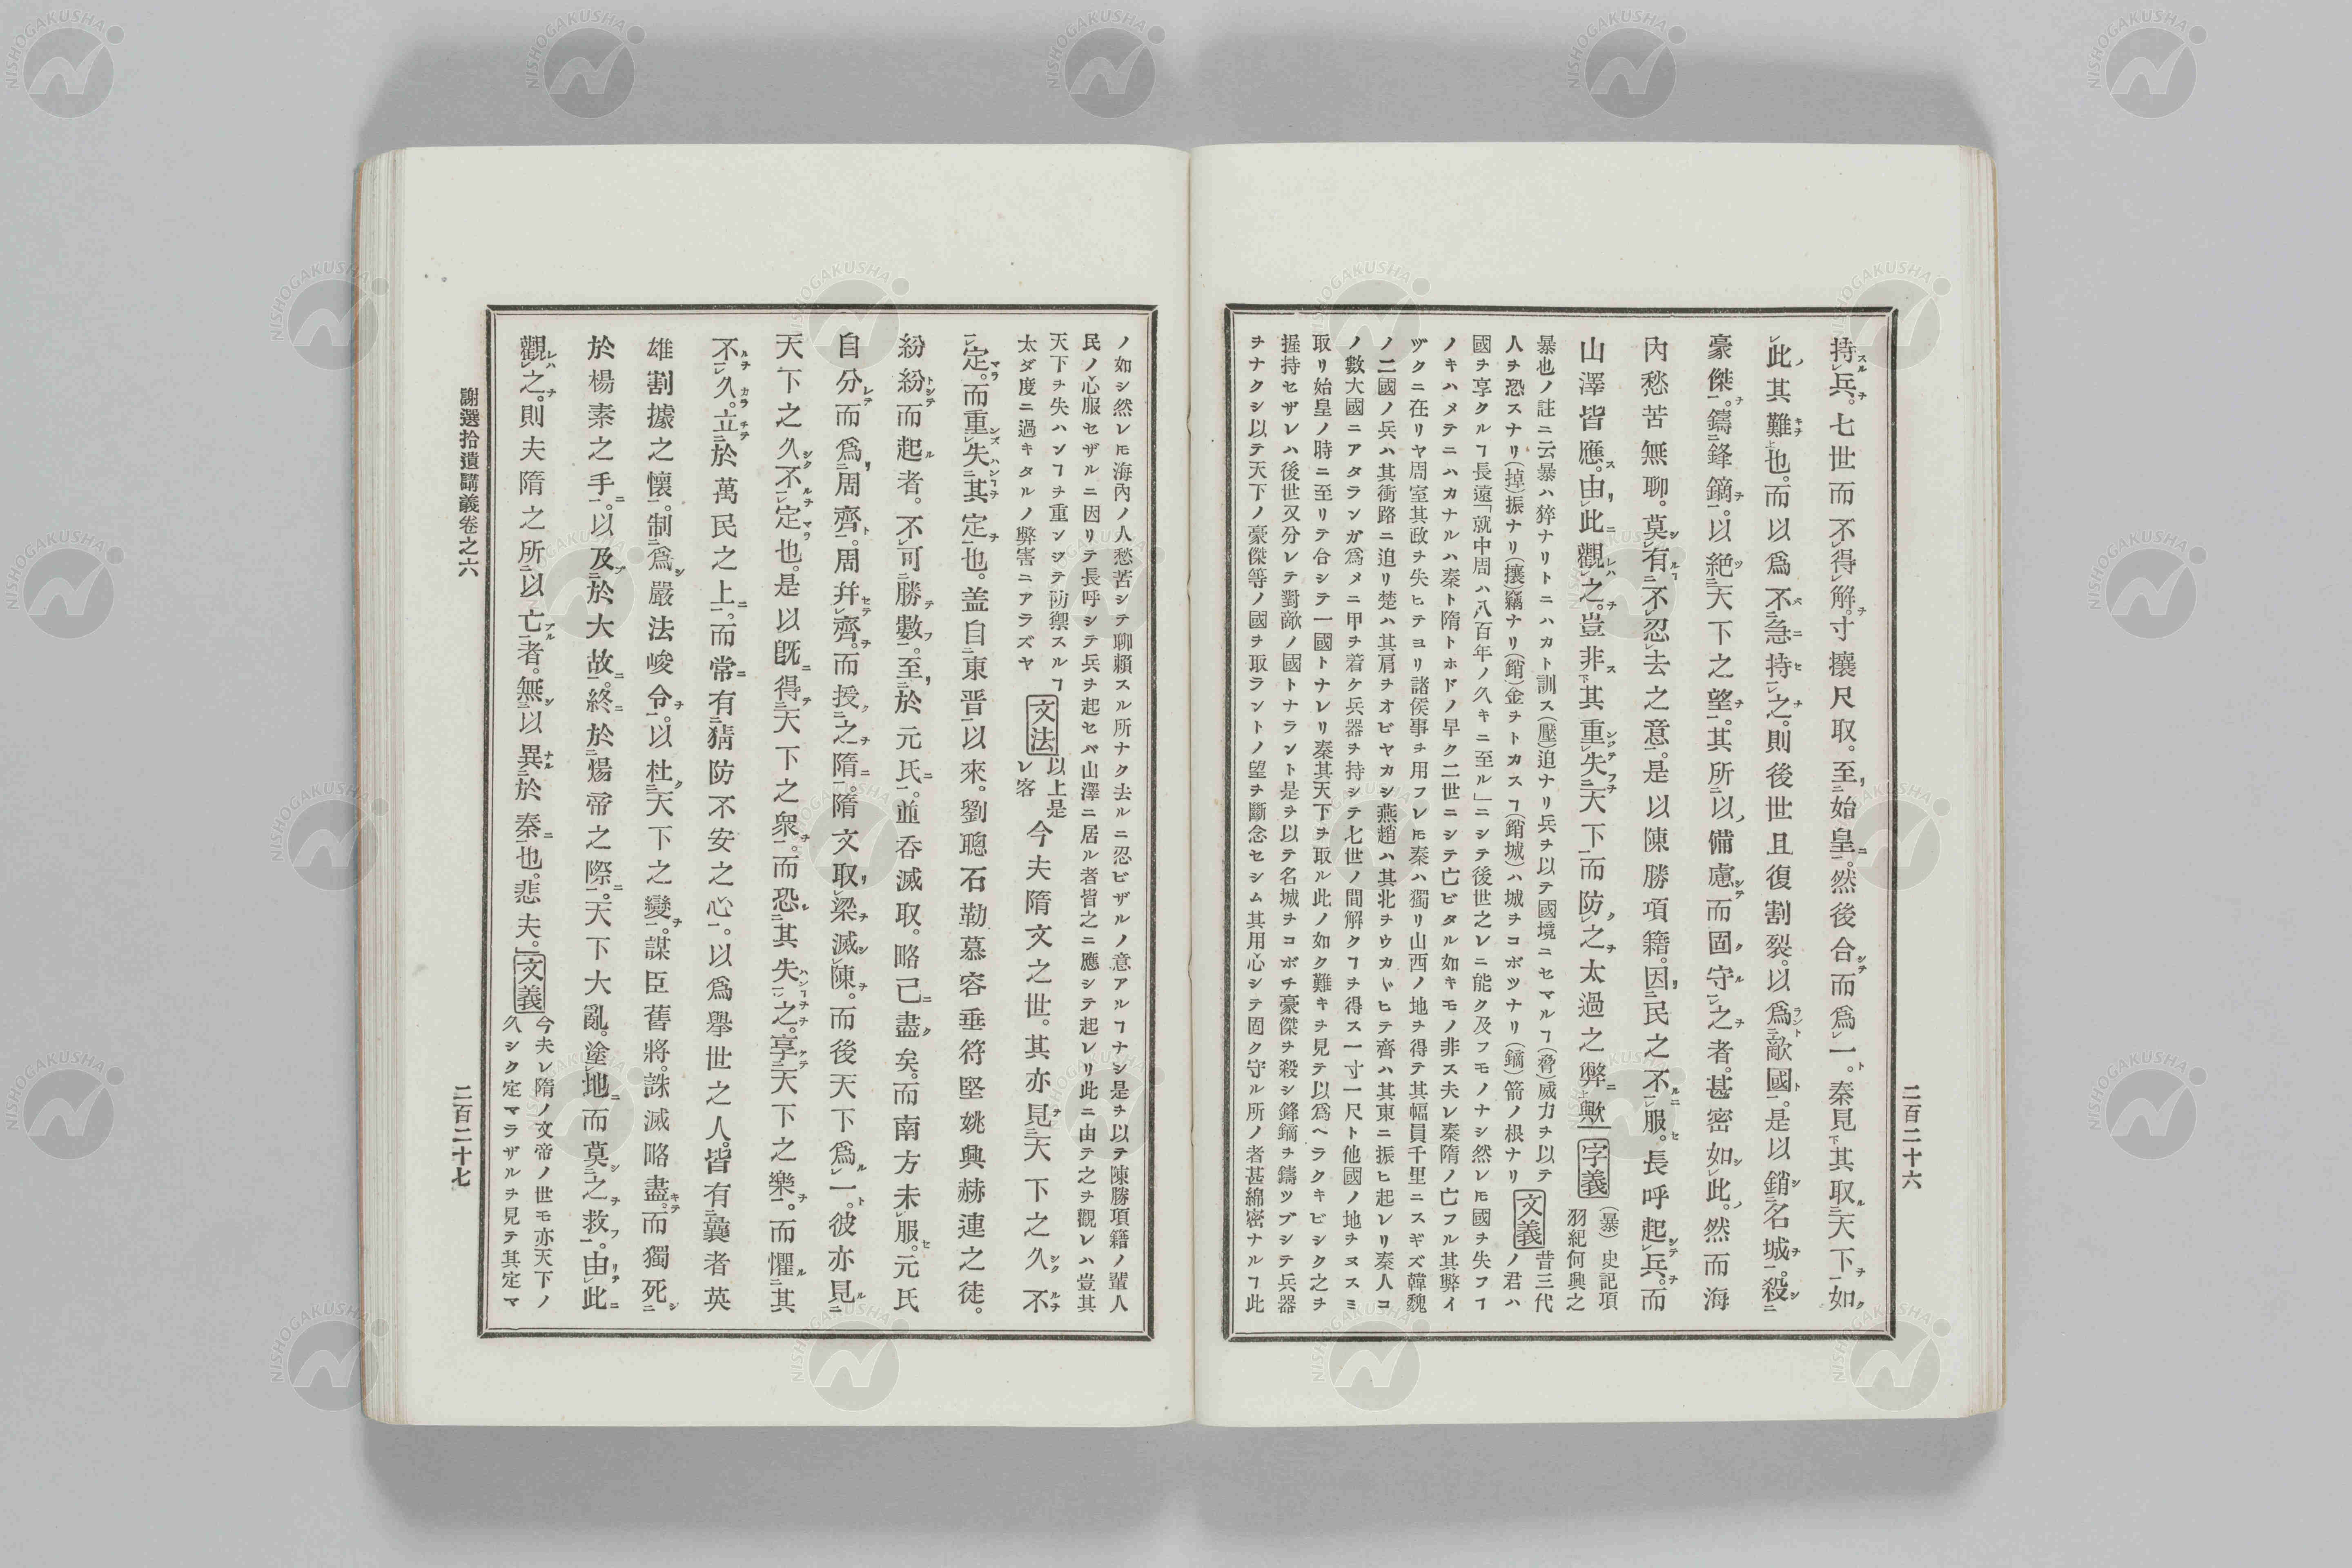 二百二十六
持兵。七世而不得解。寸攘尺取。至始皇。然後合而爲一。秦見其取天下如
此其難也。而以爲不急持之。則後世且復割裂。以爲敵國。是以銷名城。殺
豪傑。鑄鋒鏑。以絶天下之望。其所以備慮而固守之者。甚密如此。然而海
內愁苦無聊。莫有不忍去之意。是以陳勝項籍。因民之不服。長呼起兵。而
山澤皆應。由此觀之。豈非其重失天下而防之太過之弊歟 字義 (暴)史記項羽紀何興之
暴也ノ註ニ云暴ハ猝ナリトニハカト訓ス(壓)迫ナリ兵ヲ以テ國境ニセマルヿ(脅)威力ヲ以テ
人ヲ恐スナリ(掉)振ナリ(攘)竊ナリ(銷)金ヲトカスヿ(銷城)ハ城ヲコボツナリ(鏑)箭ノ根ナリ 文義 昔三代ノ君ハ
國ヲ享クルヿ長遠「就中周ハ八百年ノ久キニ至ル」ニシテ後世之レニ能ク及フモノナシ然レ𪜈國ヲ失フヿ
ノキハメテニハカナルハ秦ト隋トホドノ早ク二世ニシテ亡ビタル如キモノ非ス夫レ秦隋ノ亡フル其弊イ
ヅクニ在リヤ周室其政ヲ失ヒテヨリ諸侯事ヲ用フレ𪜈秦ハ獨リ山西ノ地ヲ得テ其幅員千里ニスギズ韓魏
ノ二國ノ兵ハ其衝路ニ迫リ楚ハ其肩ヲオビヤカシ燕趙ハ其北ヲウカヾヒテ齊ハ其東ニ振ヒ起レリ秦人コ
ノ數大國ニアタランガ爲メニ甲ヲ着ケ兵器ヲ持シテ七世ノ間解クヿヲ得ス一寸一尺ト他國ノ地ヲヌスミ
取リ始皇ノ時ニ至リテ合シテ一國トナレリ秦其天下ヲ取ル此ノ如ク難キヲ見テ以爲ヘラクキビシク之ヲ
握持セザレハ後世又分レテ對敵ノ國トナラント是ヲ以テ名城ヲコボチ豪傑ヲ殺シ鋒鏑ヲ鑄ツブシテ兵器
ヲナクシ以テ天下ノ豪傑等ノ國ヲ取ラントノ望ヲ斷念セシム其用心シテ固ク守ル所ノ者甚綿密ナルヿ此
ノ如シ然レ𪜈海內ノ人愁苦シテ聊賴スル所ナク去ルニ忍ビザルノ意アルヿナシ是ヲ以テ陳勝項籍ノ輩人
民ノ心服セザルニ因リテ長呼シテ兵ヲ起セバ山澤ニ居ル者皆之ニ應シテ起レリ此ニ由テ之ヲ觀レハ豈其
天下ヲ失ハンヿヲ重ンジテ防禦スルヿ
太ダ度ニ過キタルノ弊害ニアラズヤ 文法 以上是レ客 今夫隋文之世。其亦見天下之久不
定。而重失其定也。盖自東晋以來。劉聰石勒慕容垂符堅姚興赫連之徒。
紛紛而起者。不可勝數。至於元氏。並吞滅取。略已盡矣。而南方未服。元氏
自分而爲周齊。周幷齊。而授之隋。隋文取梁滅陳。而後天下爲一。彼亦見
天下之久不定也。是以旣得天下之衆。而恐其失之。享天下之樂。而懼其
不久。立於萬民之上。而常有猜防不安之心。以爲擧世之人。皆有曩者英
雄割據之懷。制爲嚴法峻令。以杜天下之變。謀臣舊將。誅滅略盡。而獨死
於楊素之手。以及於大故。終於煬帝之際。天下大亂。塗地而莫之救。由此
觀之。則夫隋之所以亡者。無以異於秦也。悲夫。」 文義 今夫レ隋ノ文帝ノ世モ亦天下ノ
久シク定マラザルヲ見テ其定マ
謝選拾遺講義卷之六
二百二十七